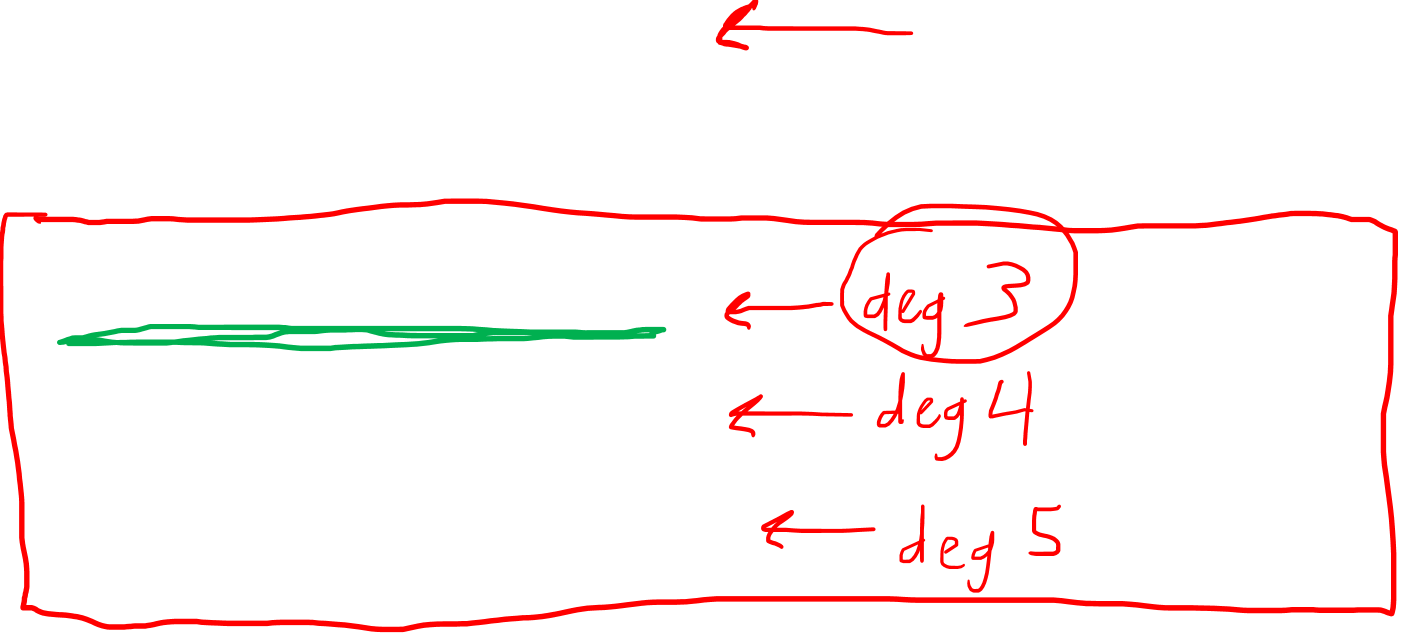 deg 3
deg 4
deg 5